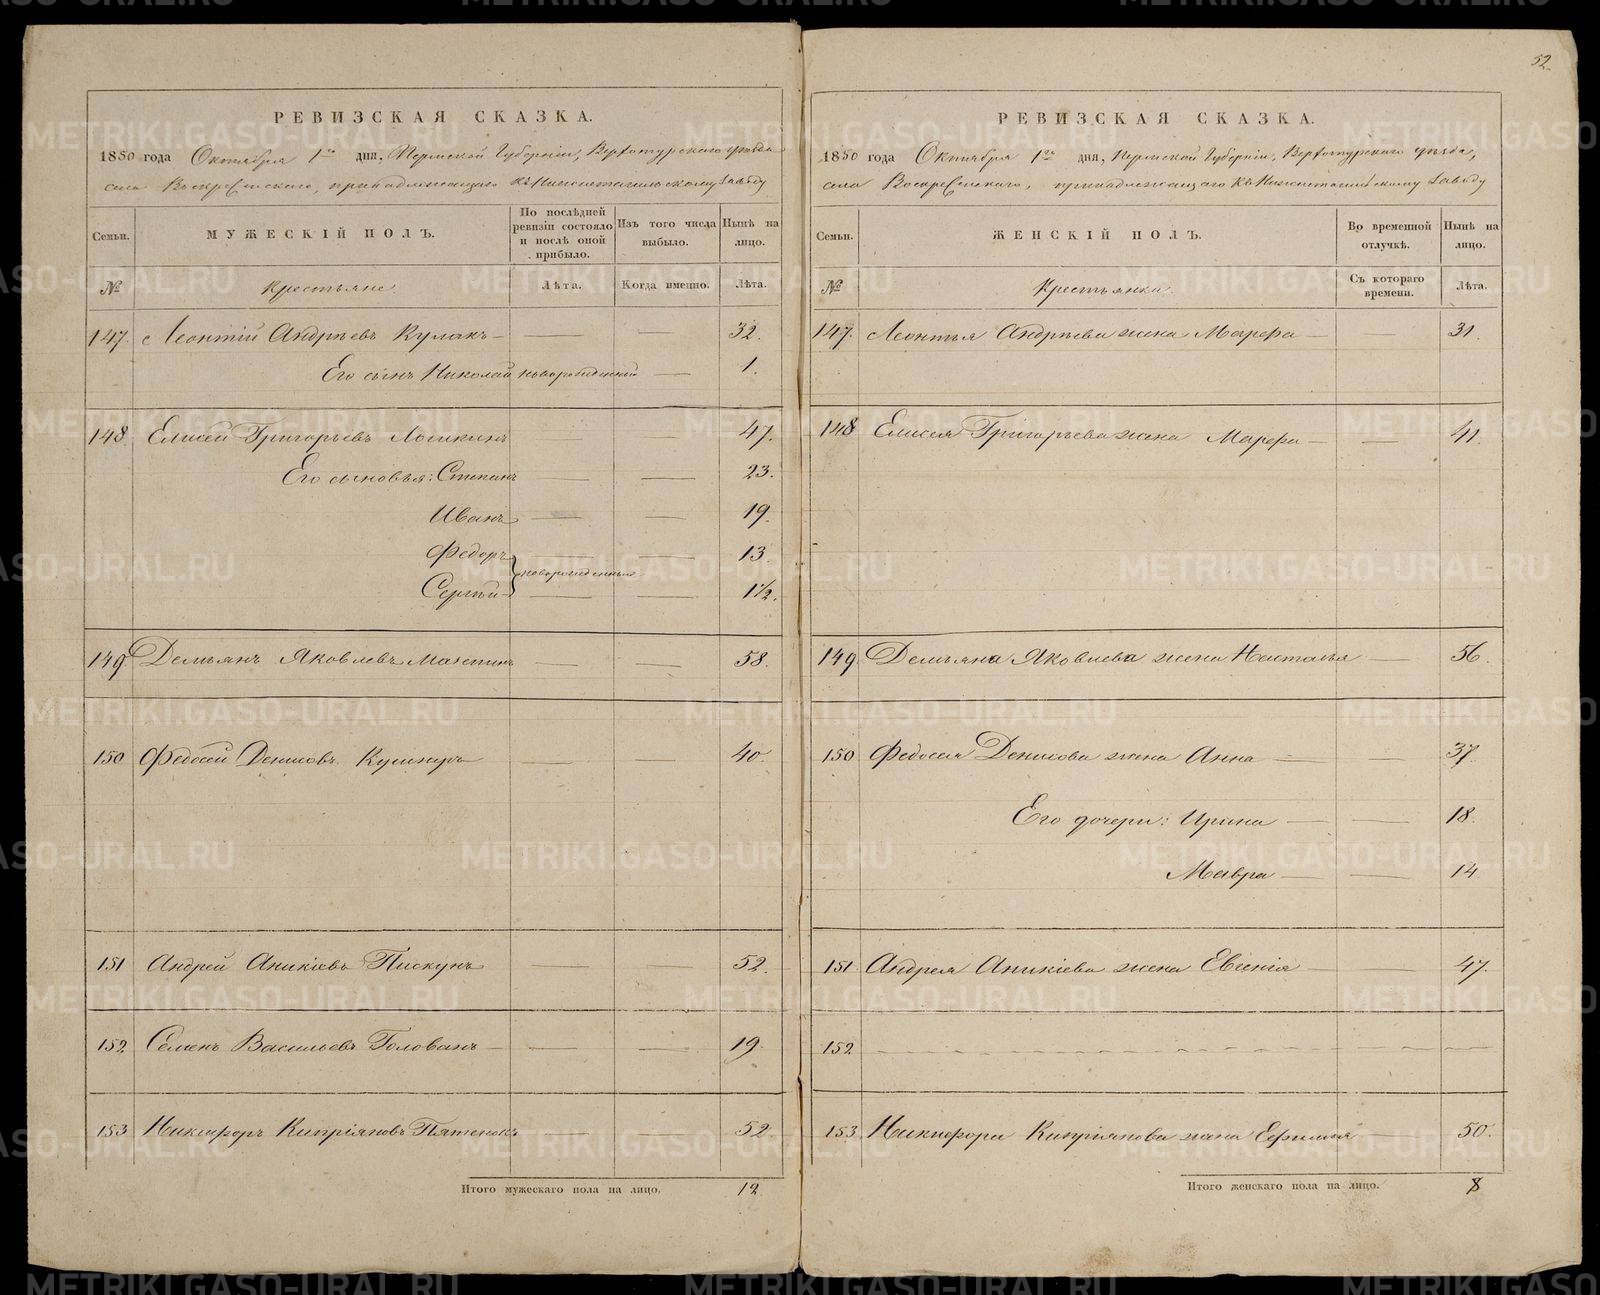 52
РЕВИЗСКАЯ СКАЗКА.
1850 года Октября 1го дня, Пермской Губерніи, Верхотурскаго уѣзда
села Воскресенскаго, принадлежащаго къ Нижнетагильскому заводу
Семьи. МУЖЕСКІЙ ПОЛЪ. По послѣдней ревизіи состояло и послѣ оной прибыло. Изъ того числа выбыло. Нынѣ на лицо.
№ Крестьяне Лѣта. Когда именно. Лѣта.
147. Леонтій Андрѣевъ Кулакъ 32.
Его сынъ Николай новорожденный 1.
148 Елисей Григорьевъ Ложкинъ 47.
Его сыновья: Степанъ 23.
Иванъ 19.
Федоръ 13
новорожденные
Сергѣй 1½.
149 Демьянъ Яковлевъ 58.
150 Федосей Денисовъ 40
151 Андрей Аникіевъ Пискунъ 52.
152 Семенъ Васильевъ Голованъ 19.
153 Никифоръ Кипріяновъ Пятенокъ 52.
Итого мужескаго пола на лицо. 12
РЕВИЗСКАЯ СКАЗКА.
1850 года Октября 1го дня, Пермской Губерніи, Верхотурскаго уѣзда,
села Воскресенскаго, принадлежащаго къ Нижнетагильскому заводу
Семьи. ЖЕНСКІЙ ПОЛЪ. Во временной отлучкѣ. Нынѣ на лицо.
№ Крестьянки. Съ котораго времени. Лѣта.
147. Леонтья Андрѣева жена Марфа 31.
148 Елисея Григорьева жена Марфа 41.
149. Демьяна Яковлева жена Наталья 56.
150 Федосея Денисова жена Анна 37.
Его дочери: Ирина 18.
Мавра 14
151 Андрея Аникіева жена Евгенія 47.
152
153 Никифора Кипріянова жена Ефимья 50.
Итого женскаго пола на лицо. 8
METRIKI.GASO-URAL.RU